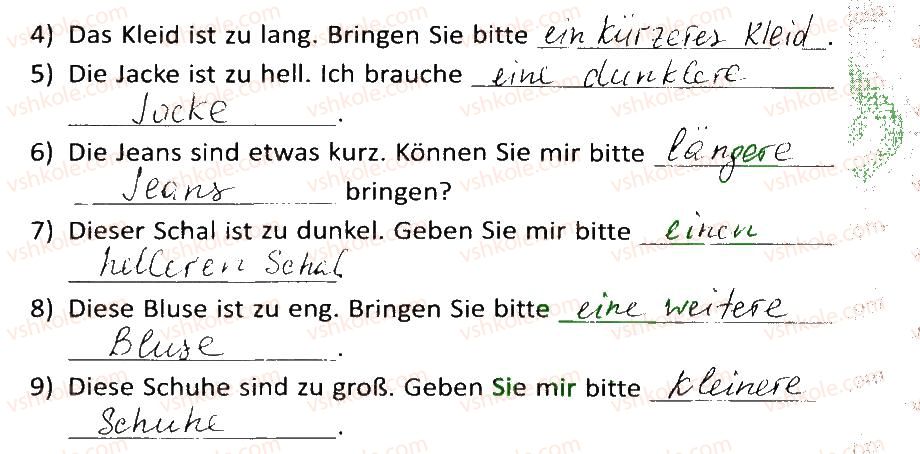 4) Das Kleid ist zu lang. Bringen Sie bitte ein kürzeres Kleid.
5) Die Jacke ist zu hell. Ich brauche eine dunklere
Jacke.
6) Die Jeans sind etwas kurz. Können Sie mir bitte längere
Jeans bringen?
7) Dieser Schal ist zu dunkel. Geben Sie mir bitte einen
helleren Schal
8) Diese Bluse ist zu eng. Bringen Sie bitte eine weitere
Bluse.
9) Diese Schuhe sind zu groß. Geben Sie mir bitte kleinere
Schuhe.